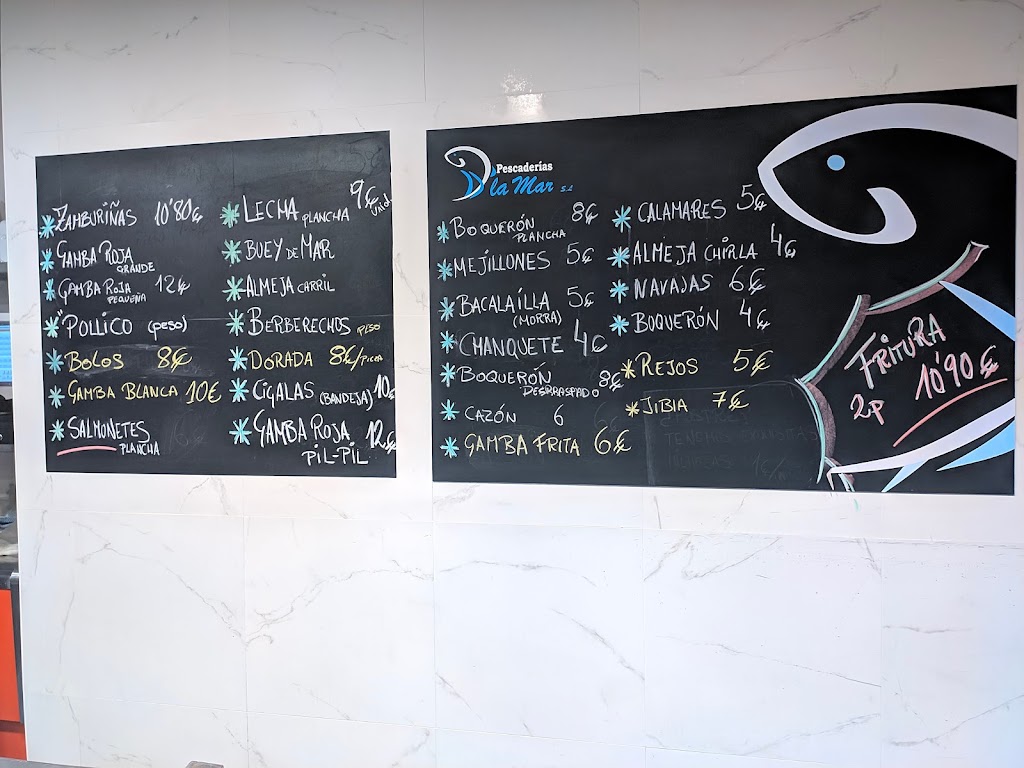 Zamburiñas 10'80€
Gamba Roja
Grande
Gamba Roja 12€
Pequeña
Pollico (peso)
Bolos 8€
Gamba Blanca 10€
Salmonetes
Plancha
Lecha Plancha 9€
Unid
Buey de Mar
Almeja Carril
Berberechos Peso
Dorada 8€/Pieza
Cigalas (Bandeja) 10€
Gamba Roja 12€
Pil-Pil
Pescaderías
D'la Mar S.L
Boquerón 8€
Plancha
Mejillones 5€
Bacalailla 5€
(Morra)
Chanquete 4€
Boquerón 8€
Desrraspado
Cazón 6
Gamba Frita 6€
Calamares 5€
Almeja Chirla 4€
Navajas 6€
Boquerón 4€
Rejos 5€
Jibia 7€
Fritura
2p 10'90€